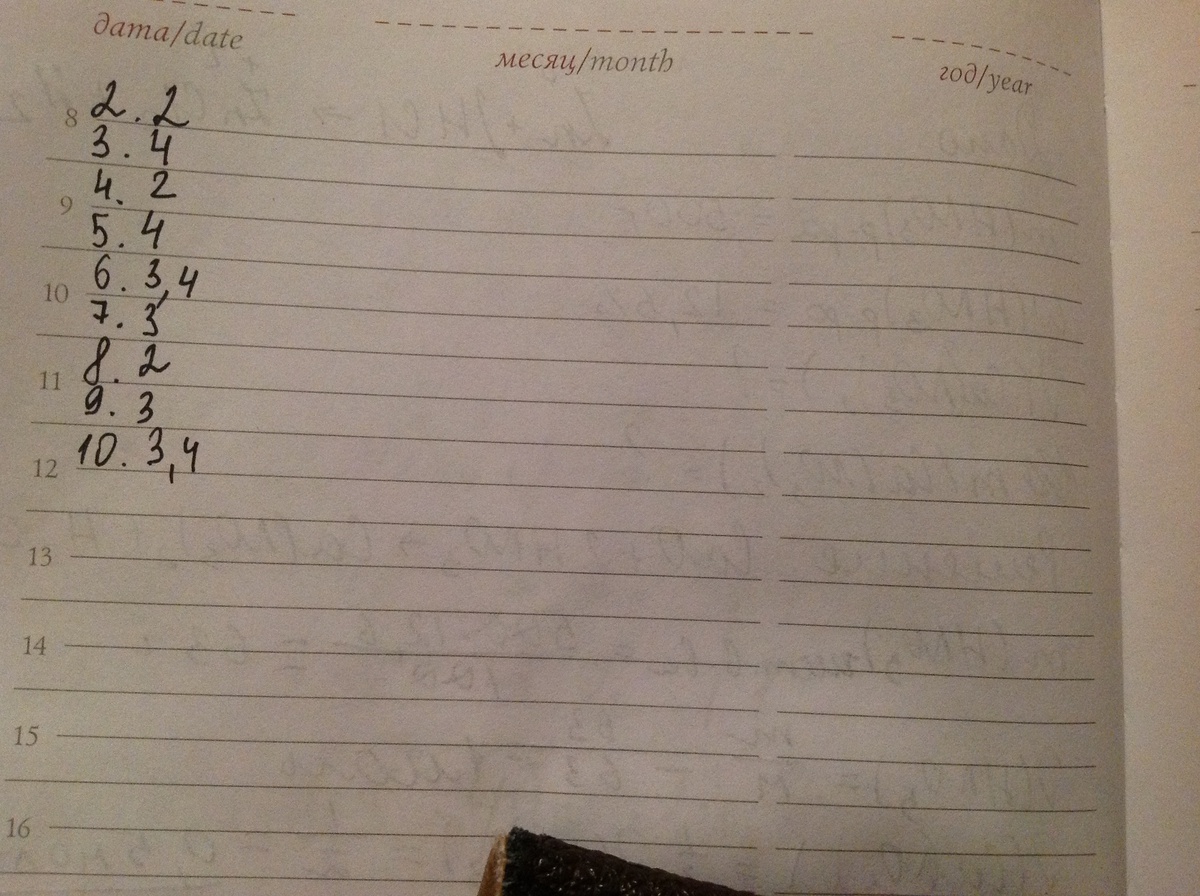 дата/date месяц/month год/year
8 2. 2
3. 4
9 4. 2
5. 4
10 6. 3,4
7. 3
11 8. 2
9. 3
12 10. 3,4
13
14
15
16